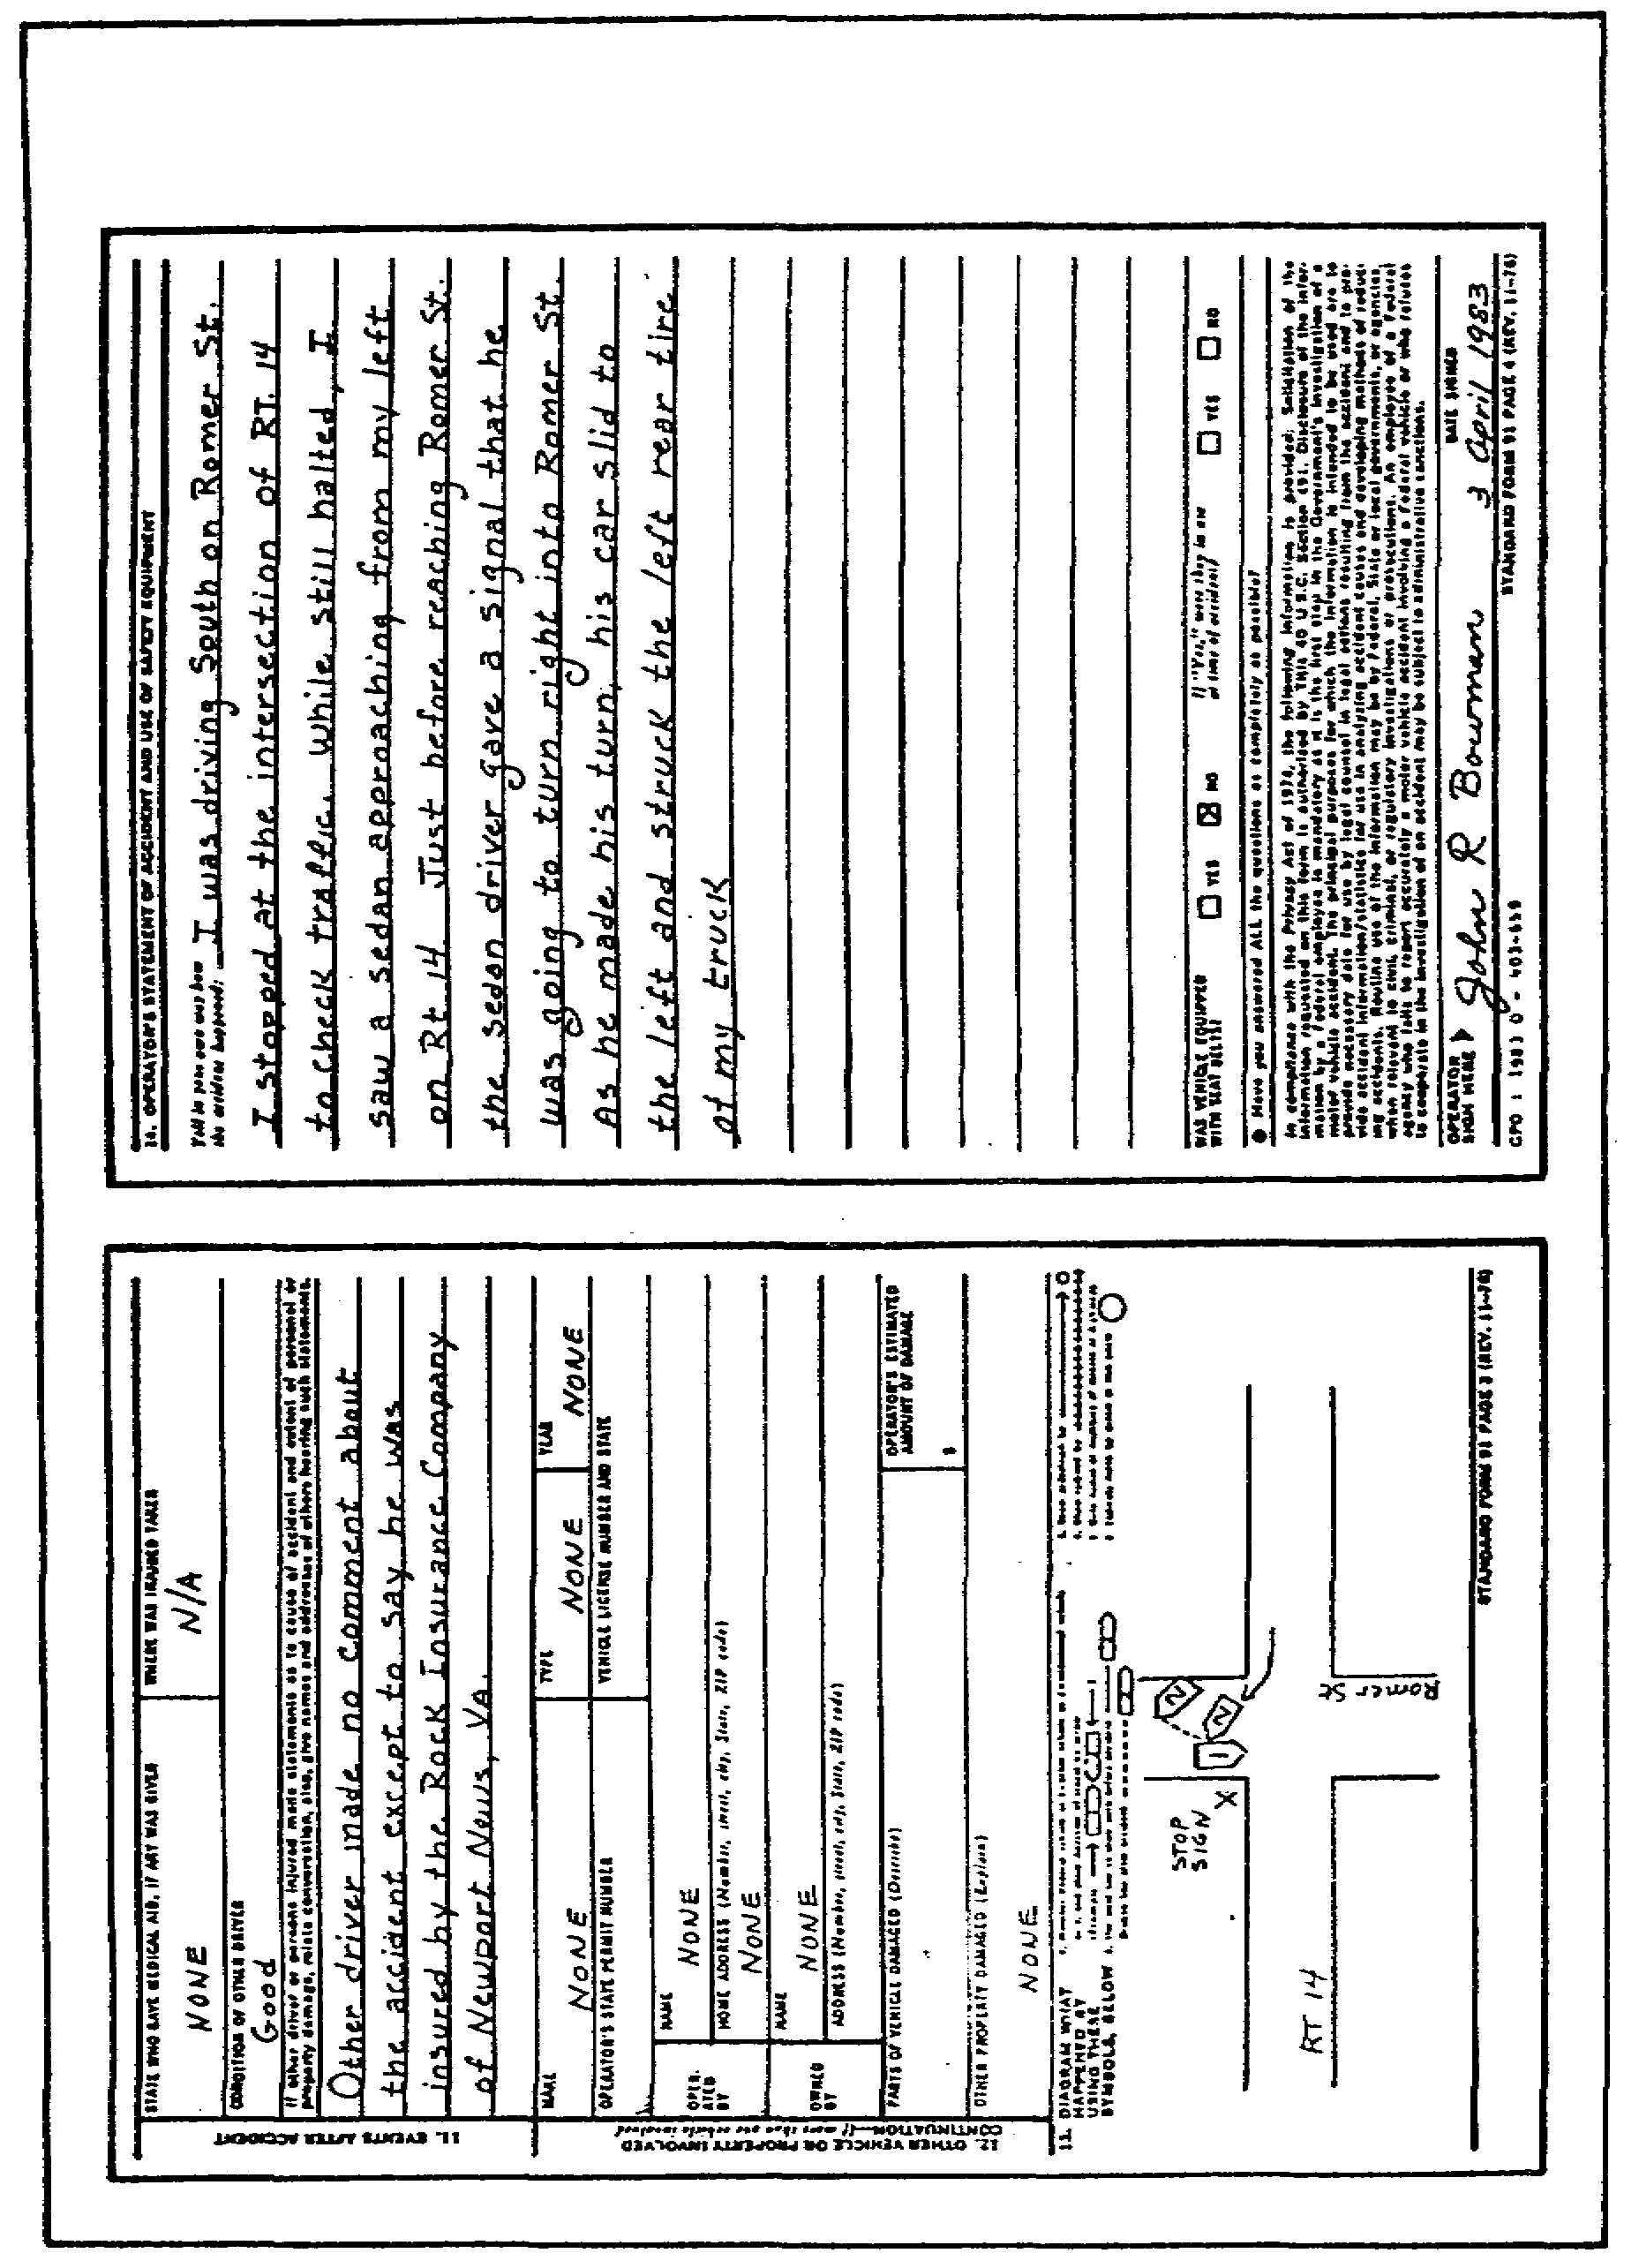 STATE WHO GAVE MEDICAL AID, IF ANY WAS GIVEN
NONE
WHERE WAS INJURED TAKEN
N/A
CONDITION OF OTHER DRIVER
Good
If other driver or persons injured made statements as to cause of accident and extent of personal or
property damage, relate conversation, also, give names and addresses of others hearing such statements.
Other driver made no comment about
the accident except to say he was
insured by the Rock Insurance Company
of Newport News, Va.
11. EVENTS AFTER ACCIDENT
MAKE
NONE
TYPE
NONE
YEAR
NONE
OPERATOR'S STATE PERMIT NUMBER
VEHICLE LICENSE NUMBER AND STATE
OPER-
ATED
BY
NAME
NONE
HOME ADDRESS (Number, street, city, State, ZIP code)
NONE
OWNED
BY
NAME
NONE
ADDRESS (Number, street, city, State, ZIP code)
PARTS OF VEHICLE DAMAGED (Describe)
OPERATOR'S ESTIMATED
AMOUNT OF DAMAGE
$
OTHER PROPERTY DAMAGED (Explain)
NONE
12. OTHER VEHICLE OR PROPERTY INVOLVED
CONTINUATION—(If more than one vehicle involved)
13. DIAGRAM WHAT
HAPPENED BY
USING THESE
SYMBOLS, BELOW
STOP
SIGN
X
1
2
2
RT 14
Romer St
STANDARD FORM 91 PAGE 3 (REV. 11-76)
14. OPERATOR'S STATEMENT OF ACCIDENT AND USE OF SAFETY EQUIPMENT
Tell in your own way how
the accident happened:
I was driving South on Romer St.
I stopped at the intersection of RT. 14
to check traffic. while still halted, I
saw a sedan approaching from my left
on Rt 14 Just before reaching Romer St.
the sedan driver gave a signal that he
was going to turn right into Romer St.
As he made his turn, his car slid to
the left and struck the left rear tire
of my truck
WAS VEHICLE EQUIPPED
WITH SEAT BELTS?
YES
X NO
If "Yes," were they in use
at time of accident?
YES
NO
● Have you answered ALL the questions as completely as possible?
In compliance with the Privacy Act of 1974, the following information is provided: Solicitation of the
information requested on this form is authorized by Title 40 U.S.C. Section 491. Disclosure of the infor-
mation by a Federal employee is mandatory as it is the first step in the Government's investigation of a
motor vehicle accident. The principal purposes for which the information is intended to be used are to
provide necessary data for use by legal counsel in legal actions resulting from the accident and to pro-
vide accident information/statistics for use in analyzing accident causes and developing methods of reduc-
ing accidents. Routine use of the information may be by Federal, State or local governments, or agencies,
when relevant to civil, criminal, or regulatory investigations or prosecutions. An employee of a Federal
agency who fails to report accurately a motor vehicle accident involving a Federal vehicle or who refuses
to cooperate in the investigation of an accident may be subject to administrative sanctions.
OPERATOR
SIGN HERE
John R Bowman
DATE SIGNED
3 April 1983
GPO : 1983 O - 403-659
STANDARD FORM 91 PAGE 4 (REV. 11-76)